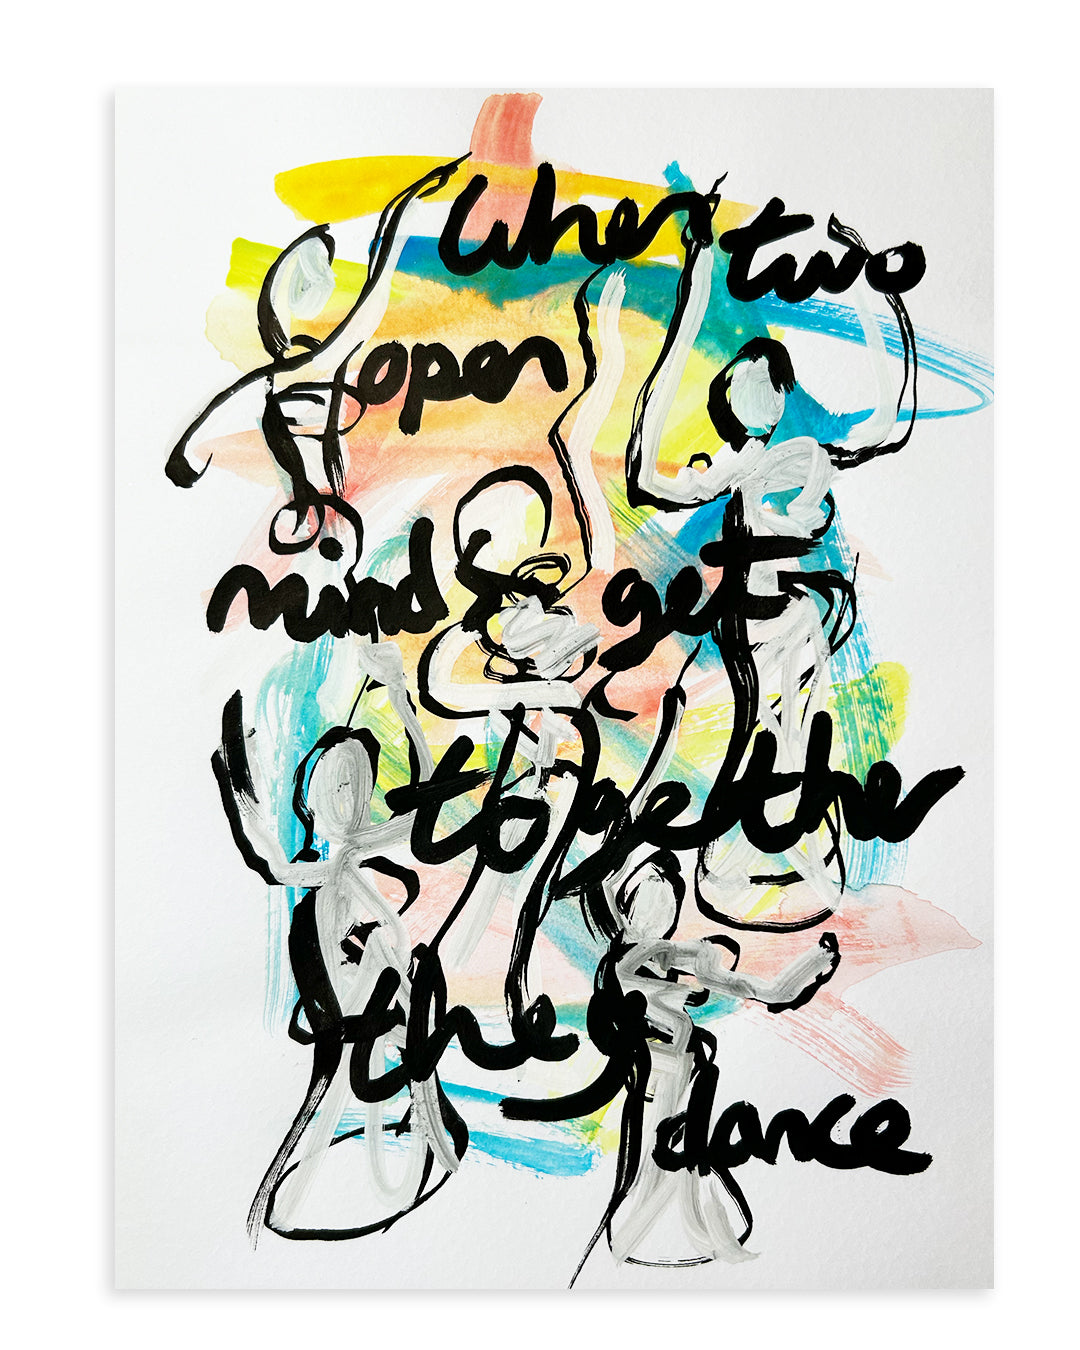 when two
open
minds get
together
they
dance